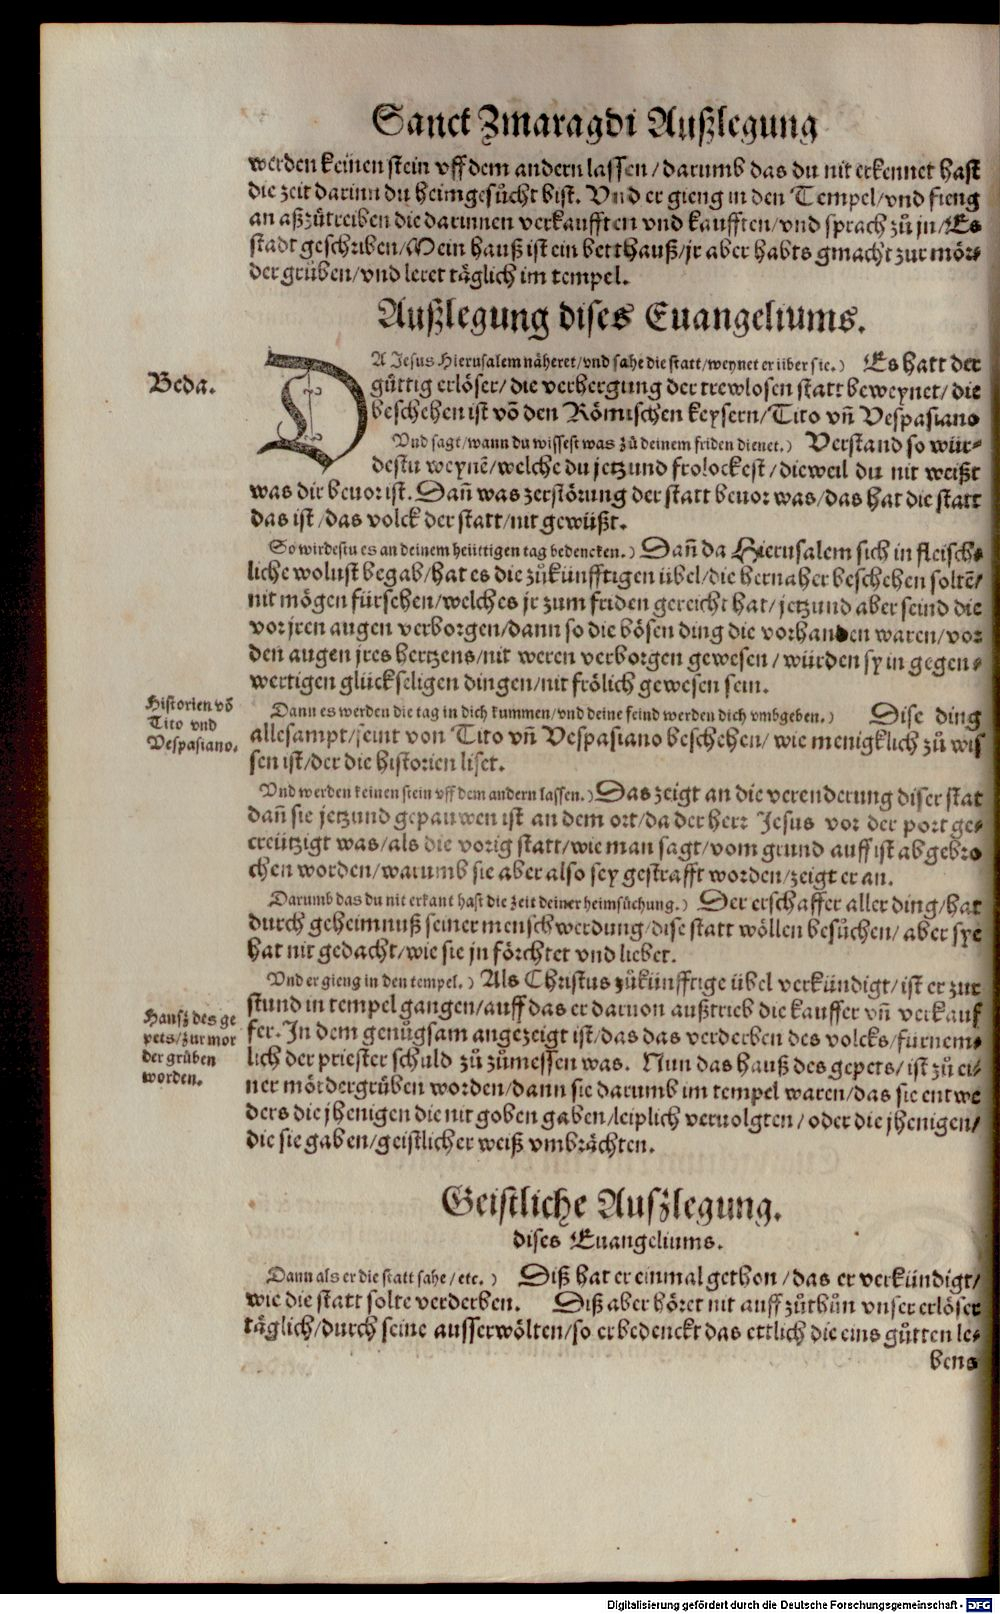 Sanct Zmaragdi Außlegung
werden keinen stein vff dem andern lassen / darumb das du nit erkennet hast
die zeit darinn du heimgesůcht bist. Vnd er gieng in den Tempel/vnd fieng
an aßzůtreiben die darinnen verkaufften vnd kaufften/vnd sprach zů jn/Es
stadt geschriben/Mein hauß ist ein betthauß/jr aber habts gmacht zur mör⸗
der grůben/vnd leret täglich im tempel.
Außlegung dises Euangeliums.
Beda.
DA Jesus Hierusalem näheret/vnd sahe die statt/weynet er über sie.) Es hatt der
gůttig erlöser/ die verhergung der trewlosen statt beweynet/ die
beschehen ist võ den Römischen keysern/ Tito vñ Vespasiano
Vnd sagt/wann du wissest was zů deinem friden dienet.) Verstand so wür⸗
destu weynẽ/welche du jetzund frolockest / dieweil du nit weißt
was dir beuor ist. Dañ was zerstörung der statt beuor was/das hat die statt
das ist /das volck der statt/nit gewüßt.
So wirdestu es an deinem heüttigen tag bedencken.) Dañ da Hierusalem sich in fleisch⸗
liche wolust begab/hat es die zůkünfftigen übel/die hernaher beschehen soltẽ/
nit mögen fürsehen/welches jr zum friden gereicht hat/ jetzund aber seind die
vor jren augen verborgen/dann so die bösen ding die vorhanden waren/vor
den augen jres hertzens/nit weren verborgen gewesen / würden sy in gegen⸗
wertigen glückseligen dingen/nit frölich gewesen sein.
Historien võ
Tito vnd
Vespasiano.
Dann es werden die tag in dich kummen/vnd deine feind werden dich vmbgeben.) Dise ding
allesampt/seint von Tito vñ Vespasiano beschehen/ wie menigklich zů wis
sen ist/der die historien liset.
Vnd werden keinen stein vff dem andern lassen.) Das zeigt an die verenderung diser stat
dañ sie jetzund gepauwen ist an dem ort/da der herr Jesus vor der port ge⸗
creützigt was/als die vorig statt/wie man sagt/vom grund auff ist abgebro
chen worden/warumb sie aber also sey gestrafft worden/zeigt er an.
Darumb das du nit erkant hast die zeit deiner heimsůchung.) Der erschaffer aller ding/hat
durch geheimnuß seiner menschwerdung/dise statt wöllen besůchen/ aber sye
hat nit gedacht/wie sie jn förchtet vnd liebet.
Vnd er gieng in den tempel.) Als Christus zůkünfftige übel verkündigt/ist er zur
stund in tempel gangen/auff das er daruon außtrieb die kauffer vñ verkauf
fer. In dem genůgsam angezeigt ist/das das verderben des volcks/fürnem⸗
lich der priester schuld zů zůmessen was. Nun das hauß des gepets/ ist zů ei⸗
ner mördergrůben worden/dann sie darumb im tempel waren/das sie entwe
ders die jhenigen die nit goben gaben/leiplich veruolgten / oder die jhenigen/
die sie gaben/geistlicher weiß vmbrächten.
Hausz des ge
pets/zur mor
der grůben
worden.
Geistliche Auszlegung.
dises Euangeliums.
Dann als er die statt sahe / etc.) Diß hat er einmal gethon / das er verkündigt/
wie die statt solte verderben. Diß aber höret nit auff zůthůn vnser erlöser
täglich/durch seine ausserwölten/so er bedenckt das ettlich die eins gůtten le⸗
bens
Digitalisierung gefördert durch die Deutsche Forschungsgemeinschaft - DFG